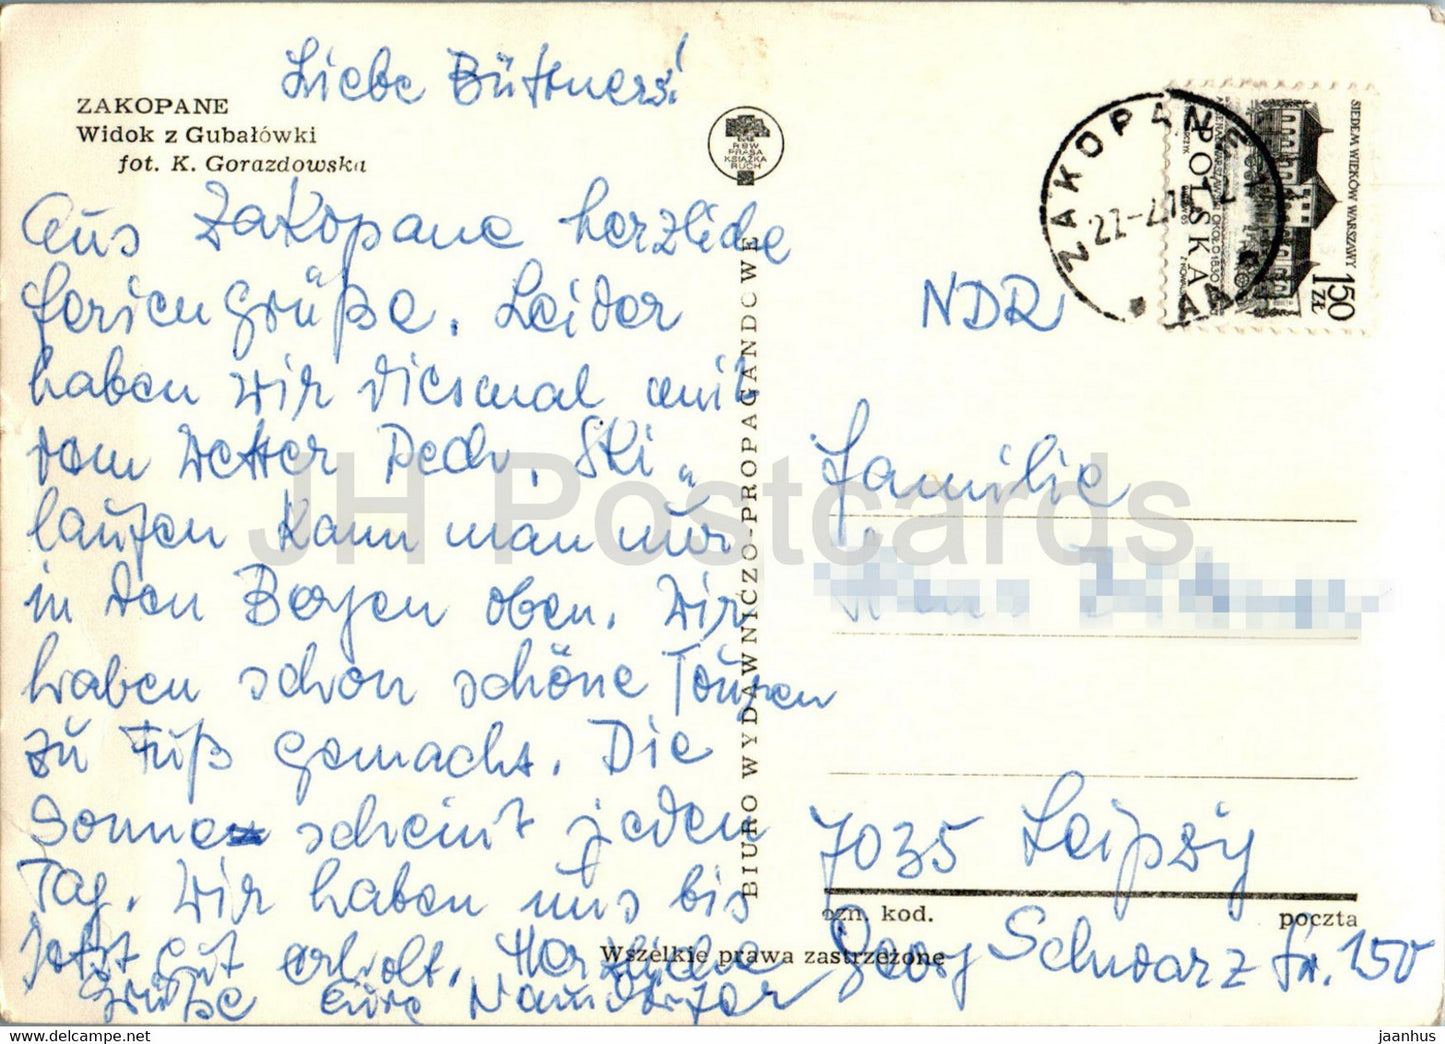 Liebe Büttners!
ZAKOPANE
Widok z Gubałówki
fot. K. Gorazdowska
Aus Zakopane herzliche
Feriengrüße. Leider
haben wir diesmal mit
dem Wetter Pech. Ski„
laufen kann man nur
in den Bergen oben. Wir
haben schon schöne Touren
zu Fuß gemacht. Die
Sonne scheint jeden
Tag. Wir haben uns bis
jetzt gut erholt. Herzliche
Grüße eure
RSW
PRASA
KSIĄŻKA
RUCH
BIURO WYDAWNICZO-PROPAGANDOWE
Wszelkie prawa zastrzeżone
ZAKOPANE 1
SIEDEM WIEKÓW WARSZAWY
POLSKA
1.50 ZŁ
NDR
Familie
7035 Leipzig
ozn. kod.
poczta
Georg Schwarz Str. 150
JH Postcards
www.hippostcard.com/store/jh-postcards
jaanhus